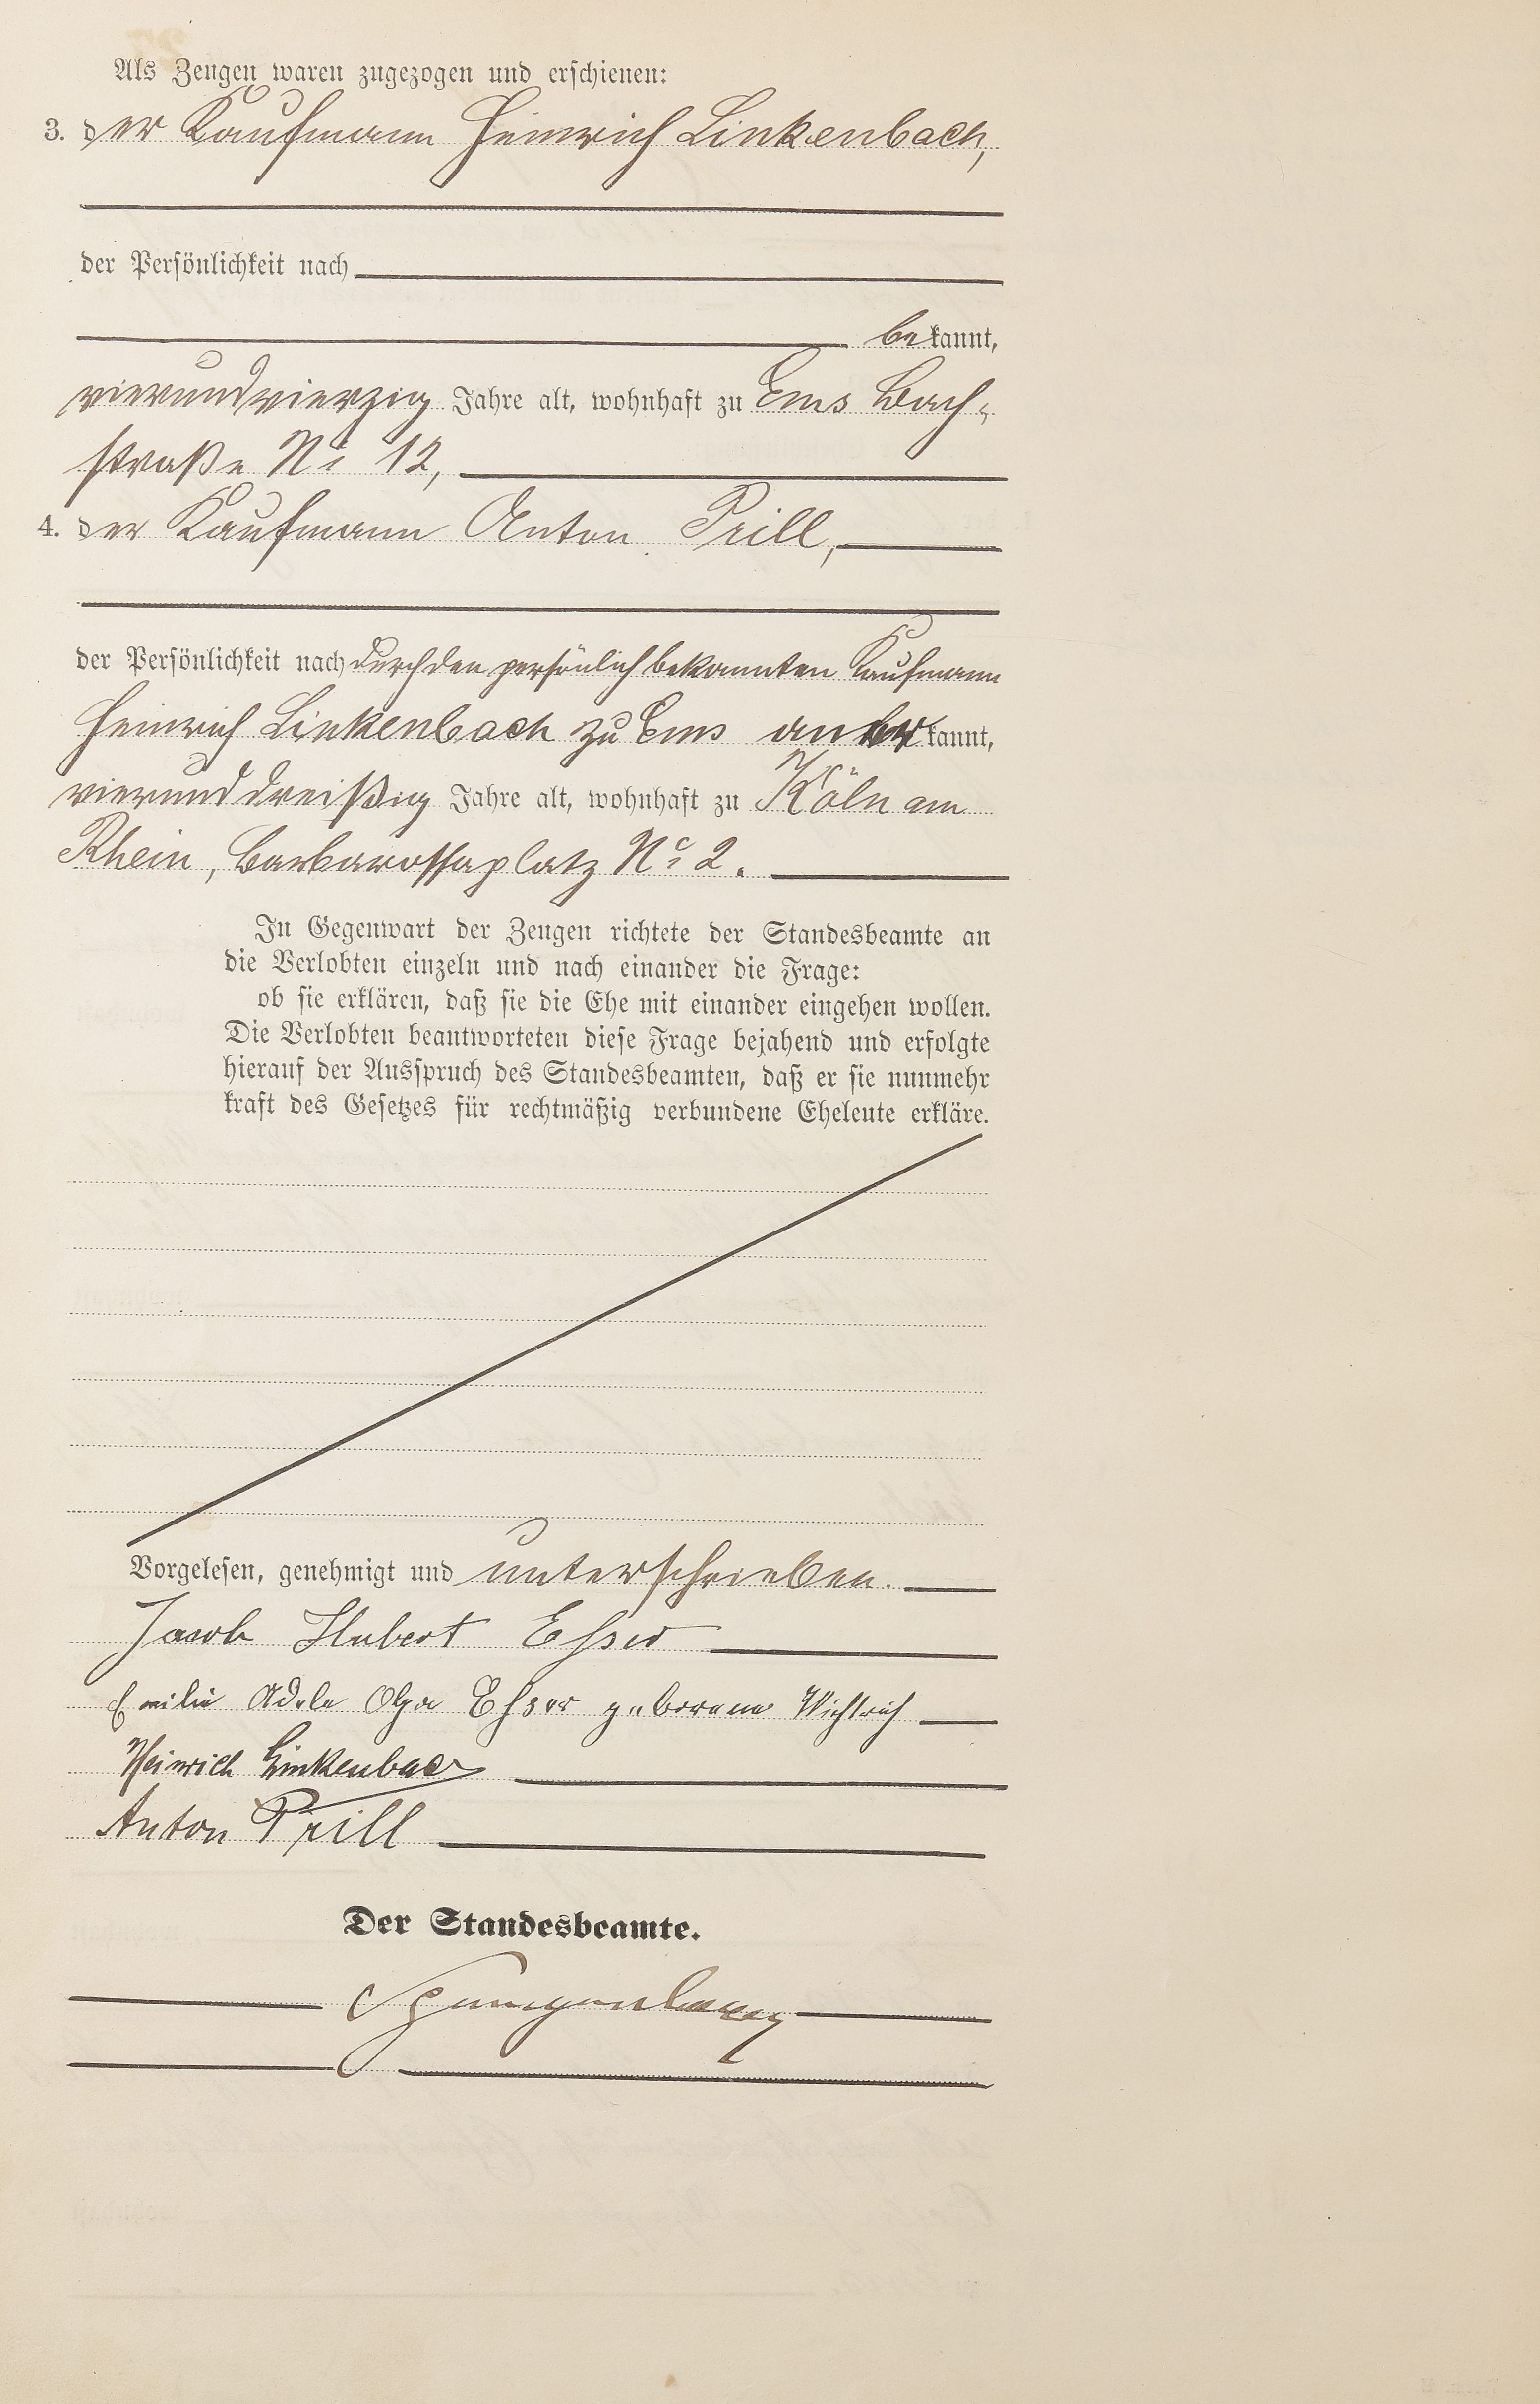 Als Zeugen waren zugezogen und erschienen:
3. der Kaufmann Heinrich Linkenbach,
der Persönlichkeit nach
bekannt,
vierundvierzig Jahre alt, wohnhaft zu Ems Bach-
straße No 12,
4. der Kaufmann Anton Prill,
der Persönlichkeit nach durch den persönlich bekannten Kaufmann
Heinrich Linkenbach zu Ems anerkannt,
vierunddreißig Jahre alt, wohnhaft zu Köln am
Rhein, Barbarossaplatz No 2.
In Gegenwart der Zeugen richtete der Standesbeamte an
die Verlobten einzeln und nach einander die Frage:
ob sie erklären, daß sie die Ehe mit einander eingehen wollen.
Die Verlobten beantworteten diese Frage bejahend und erfolgte
hierauf der Ausspruch des Standesbeamten, daß er sie nunmehr
kraft des Gesetzes für rechtmäßig verbundene Eheleute erkläre.
Vorgelesen, genehmigt und unterschrieben.
Jacob Hubert Esser
Emilie Adele Olga Esser geborene Wichtrich
Heinrich Linkenbach
Anton Prill
Der Standesbeamte.
Spangenberg